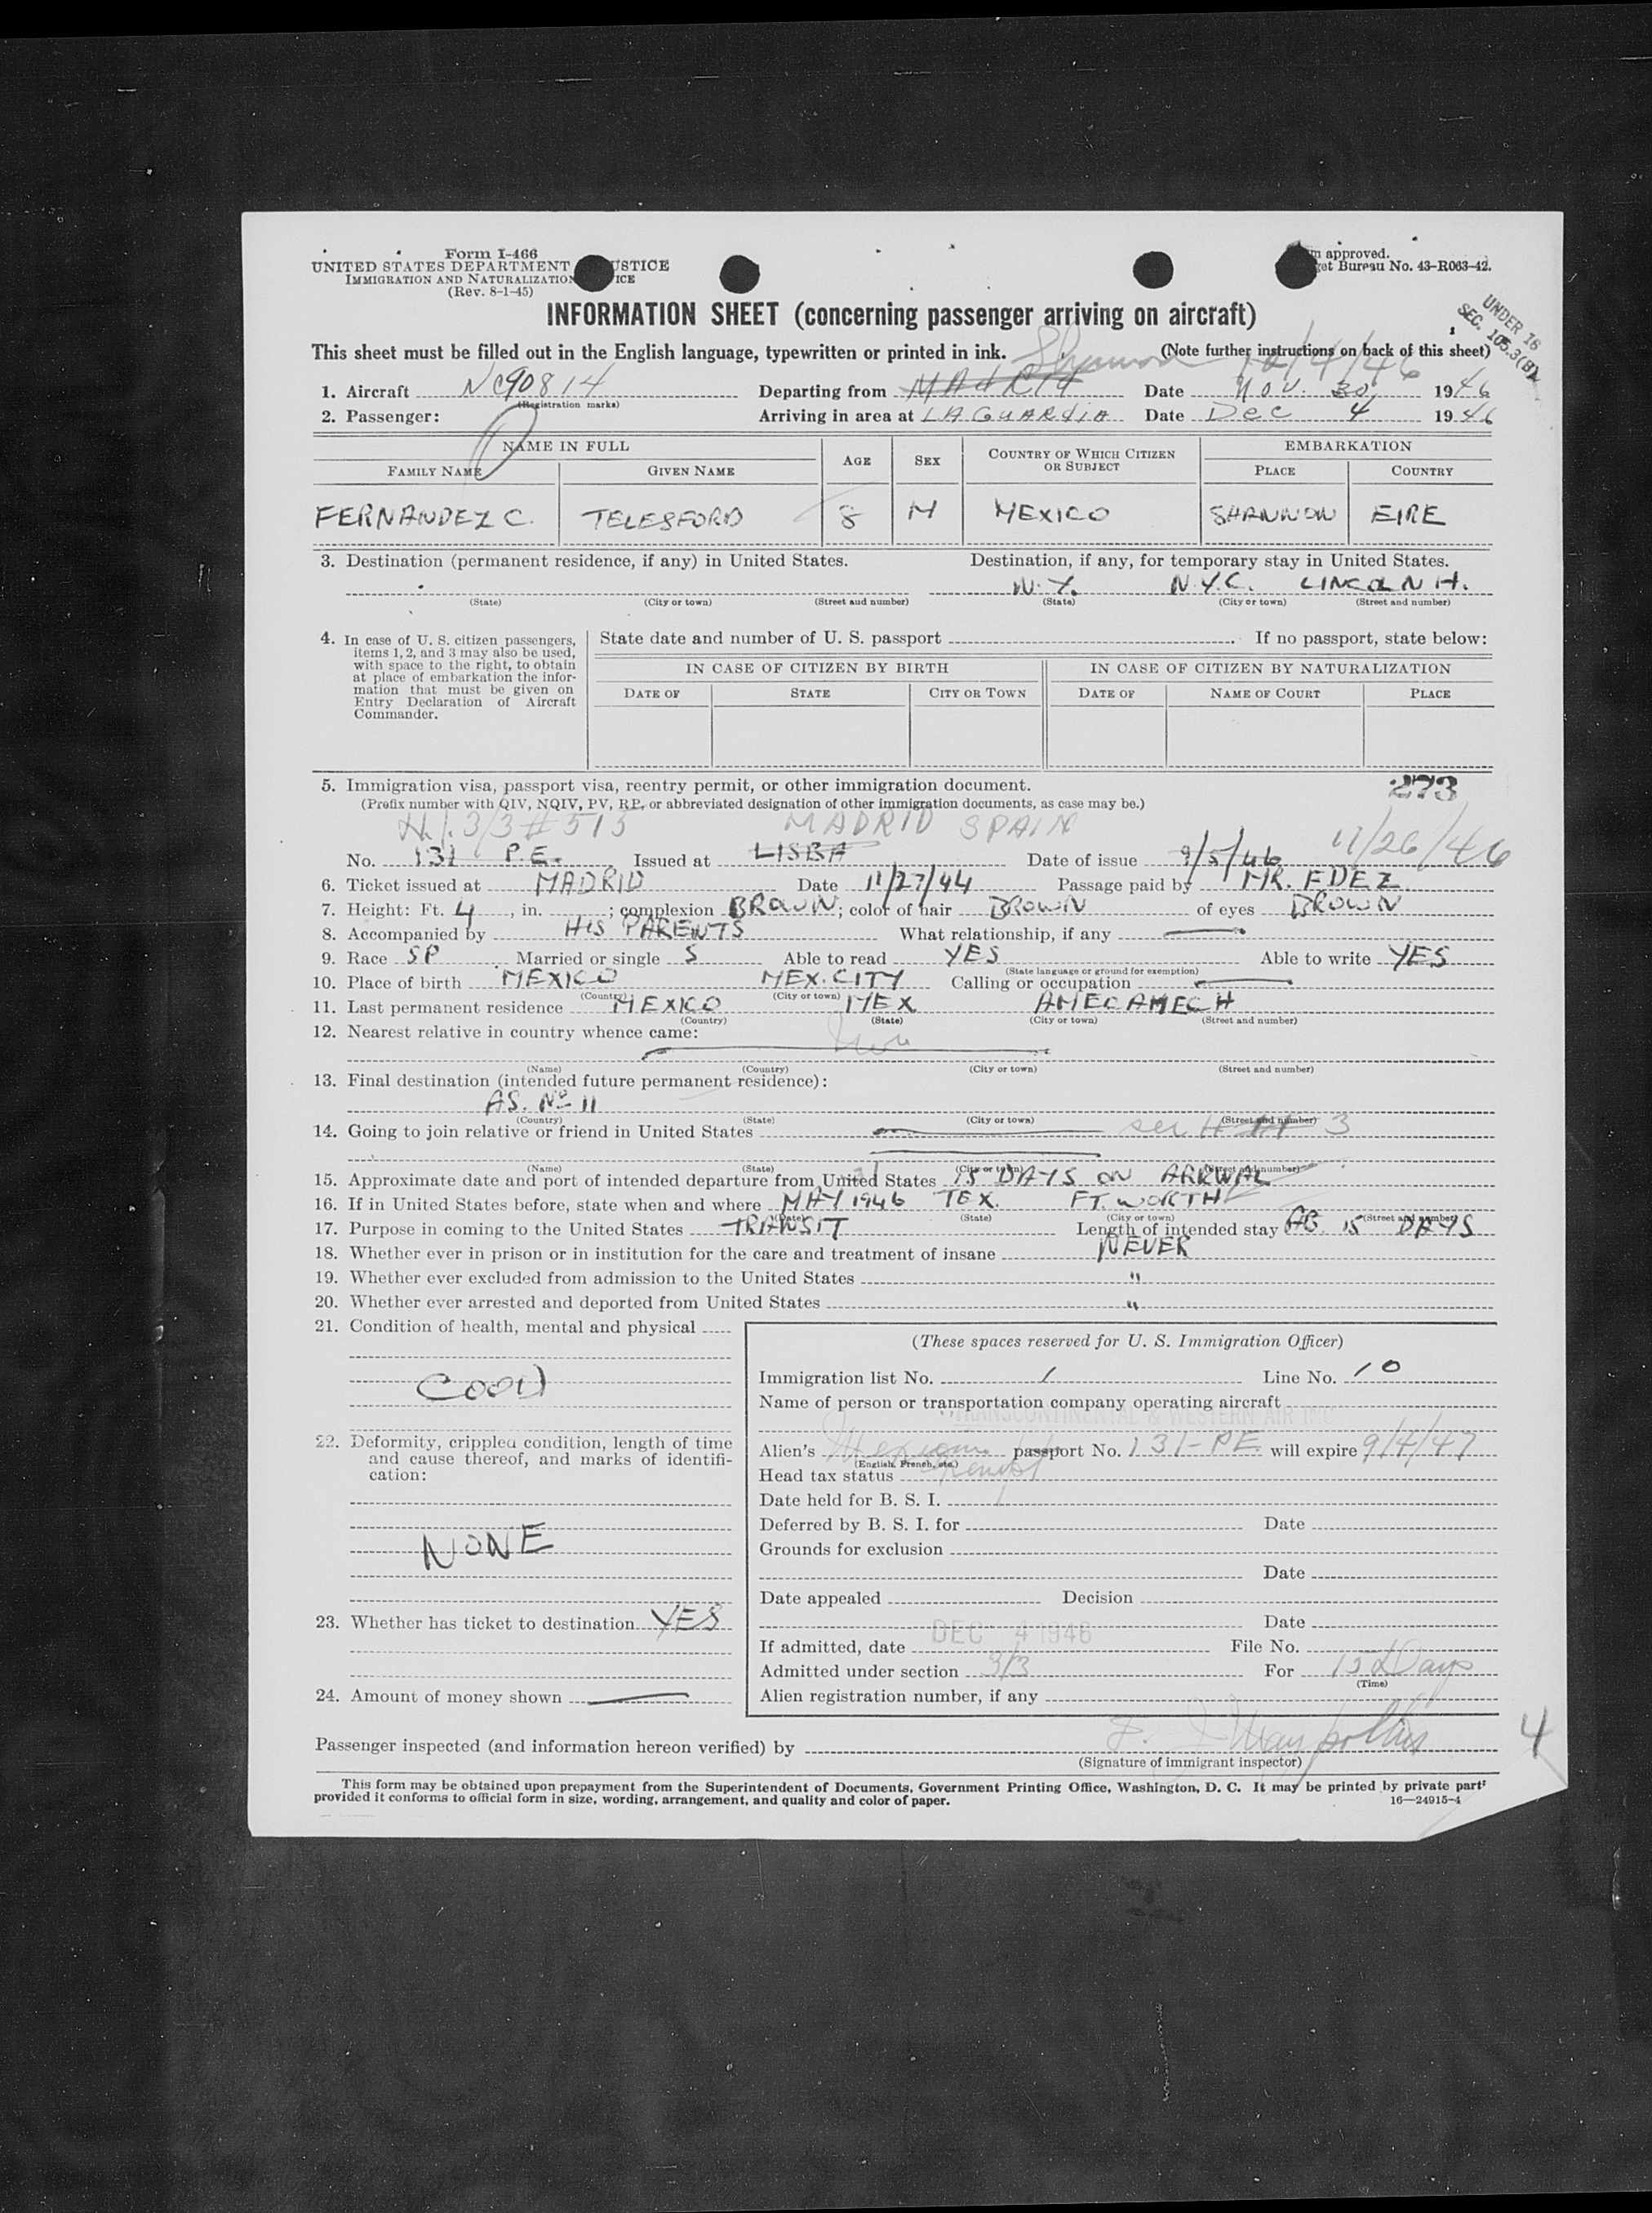 Form I-466
UNITED STATES DEPARTMENT JUSTICE
IMMIGRATION AND NATURALIZATION ICE
(Rev. 8-1-45)
approved.
Bureau No. 43-R063-42.
INFORMATION SHEET (concerning passenger arriving on aircraft)
UNDER 16
SEC. 105.3(B)
This sheet must be filled out in the English language, typewritten or printed in ink. (Note further instructions on back of this sheet)
12/4/46
1. Aircraft NC90814 Departing from MAdRId Date NOV. 30, 1946
(Registration marks)
2. Passenger: Arriving in area at LAGUARdiA Date Dec 4 1946
NAME IN FULL AGE SEX COUNTRY OF WHICH CITIZEN OR SUBJECT EMBARKATION
FAMILY NAME GIVEN NAME PLACE COUNTRY
FERNANDEZ C. TELESFORO 8 M MEXICO SHANNON EIRE
3. Destination (permanent residence, if any) in United States. Destination, if any, for temporary stay in United States.
N.Y. N.Y.C. LINCOLN H.
(State) (City or town) (Street and number) (State) (City or town) (Street and number)
4. In case of U. S. citizen passengers, items 1, 2, and 3 may also be used, with space to the right, to obtain at place of embarkation the information that must be given on Entry Declaration of Aircraft Commander.
State date and number of U. S. passport . If no passport, state below:
IN CASE OF CITIZEN BY BIRTH IN CASE OF CITIZEN BY NATURALIZATION
DATE OF STATE CITY OR TOWN DATE OF NAME OF COURT PLACE
5. Immigration visa, passport visa, reentry permit, or other immigration document. 273
(Prefix number with QIV, NQIV, PV, RP, or abbreviated designation of other immigration documents, as case may be.)
3/3 # 515 MADRID SPAIN 11/26/46
No. 131 P.E. Issued at LISBA Date of issue 9/5/46
6. Ticket issued at MADRID Date 11/27/44 Passage paid by MR. FDEZ
7. Height: Ft. 4, in. ; complexion BROWN; color of hair BROWN of eyes BROWN
8. Accompanied by HIS PARENTS What relationship, if any
9. Race SP Married or single S Able to read YES Able to write YES
(State language or ground for exemption)
10. Place of birth MEXICO MEX. CITY Calling or occupation
(Country) (City or town)
11. Last permanent residence MEXICO MEX AMECAMECH
(Country) (State) (City or town) (Street and number)
12. Nearest relative in country whence came:
(Name) (Country) (City or town) (Street and number)
13. Final destination (intended future permanent residence):
AS. Nº 11
(Country) (State) (City or town) (Street and number)
14. Going to join relative or friend in United States
(Name) (State) (City or town) (Street and number)
15. Approximate date and port of intended departure from United States 15 DAYS ON ARRWAL
16. If in United States before, state when and where MAY 1946 TEX. FT. WORTH
(Date) (State) (City or town) (Street and number)
17. Purpose in coming to the United States TRANSIT Length of intended stay AB. 15 DAYS
18. Whether ever in prison or in institution for the care and treatment of insane NEVER
19. Whether ever excluded from admission to the United States "
20. Whether ever arrested and deported from United States "
21. Condition of health, mental and physical
GOOD
22. Deformity, crippled condition, length of time and cause thereof, and marks of identification:
NONE
23. Whether has ticket to destination YES
24. Amount of money shown
(These spaces reserved for U. S. Immigration Officer)
Immigration list No. 1 Line No. 10
Name of person or transportation company operating aircraft
TRANSCONTINENTAL & WESTERN AIR INC
Alien's Mexican passport No. 131-PE will expire 9/4/47
(English, French, etc.)
Head tax status
Date held for B. S. I.
Deferred by B. S. I. for Date
Grounds for exclusion
Date
Date appealed Decision
Date
If admitted, date DEC 4 1946 File No.
Admitted under section 3/3 For 15 Days
(Time)
Alien registration number, if any
Passenger inspected (and information hereon verified) by
(Signature of immigrant inspector)
4
This form may be obtained upon prepayment from the Superintendent of Documents, Government Printing Office, Washington, D. C. It may be printed by private part
provided it conforms to official form in size, wording, arrangement, and quality and color of paper. 16—24915-4